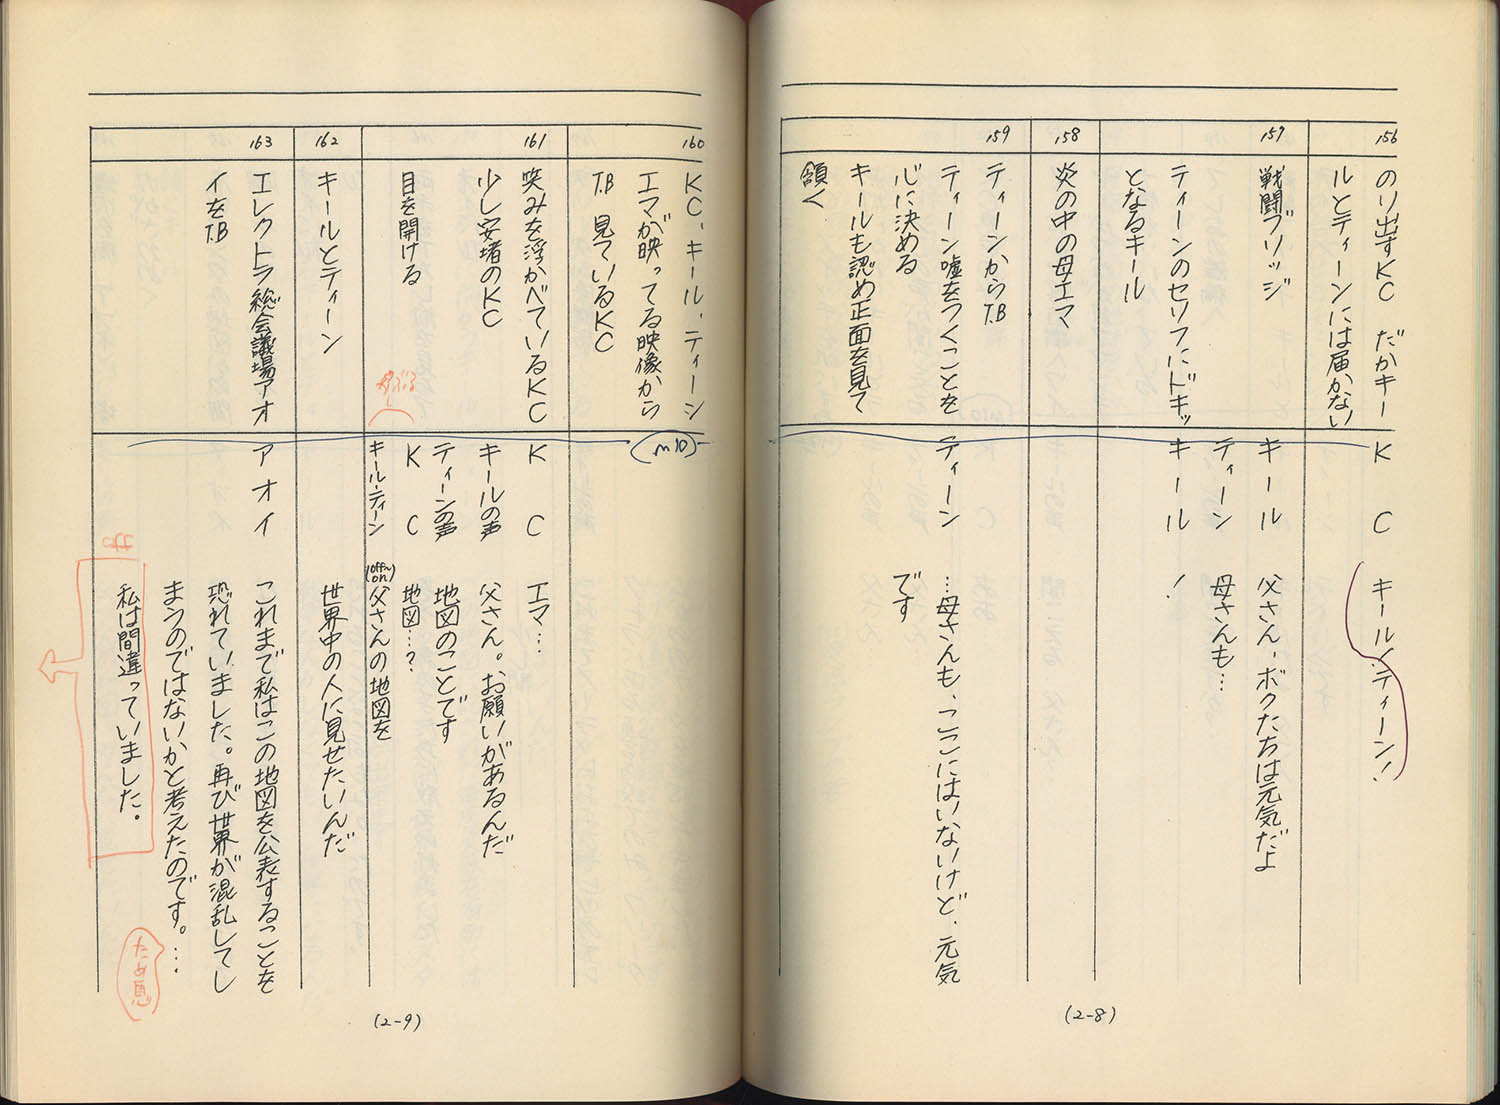 156
のり出すKC だがキー
ルとティーンには届かない
KC
キール、ティーン!
157
戦闘ブリッジ
キール
父さん、ボクたちは元気だよ
ティーン
母さんも…
ティーンのセリフにドキッ
となるキール
キール
!
158
炎の中の母エマ
159
ティーンからT.B
ティーン嘘をつくことを
心に決める
キールも認め正面を見て
頷く
ティーン
…母さんも、ここにはいないけど、元気
です
(2-8)
160
KC、キール、ティーン
エマが映ってる映像から
T.B 見ているKC
(M10)
161
笑みを浮かべているKC
少し安堵のKC
目を開ける
KC
エマ…
キールの声
父さん。お願いがあるんだ
ティーンの声
地図のことです
KC
地図…?
かぶる
キール・ティーン
(off〜on)
父さんの地図を
162
キールとティーン
世界中の人に見せたいんだ
163
エレクトラ総会議場アオ
イをT.B
アオイ
これまで私はこの地図を公表することを
恐れていました。再び世界が混乱してし
まうのではないかと考えたのです。…
ため息
私は間違っていました。
(2-9)